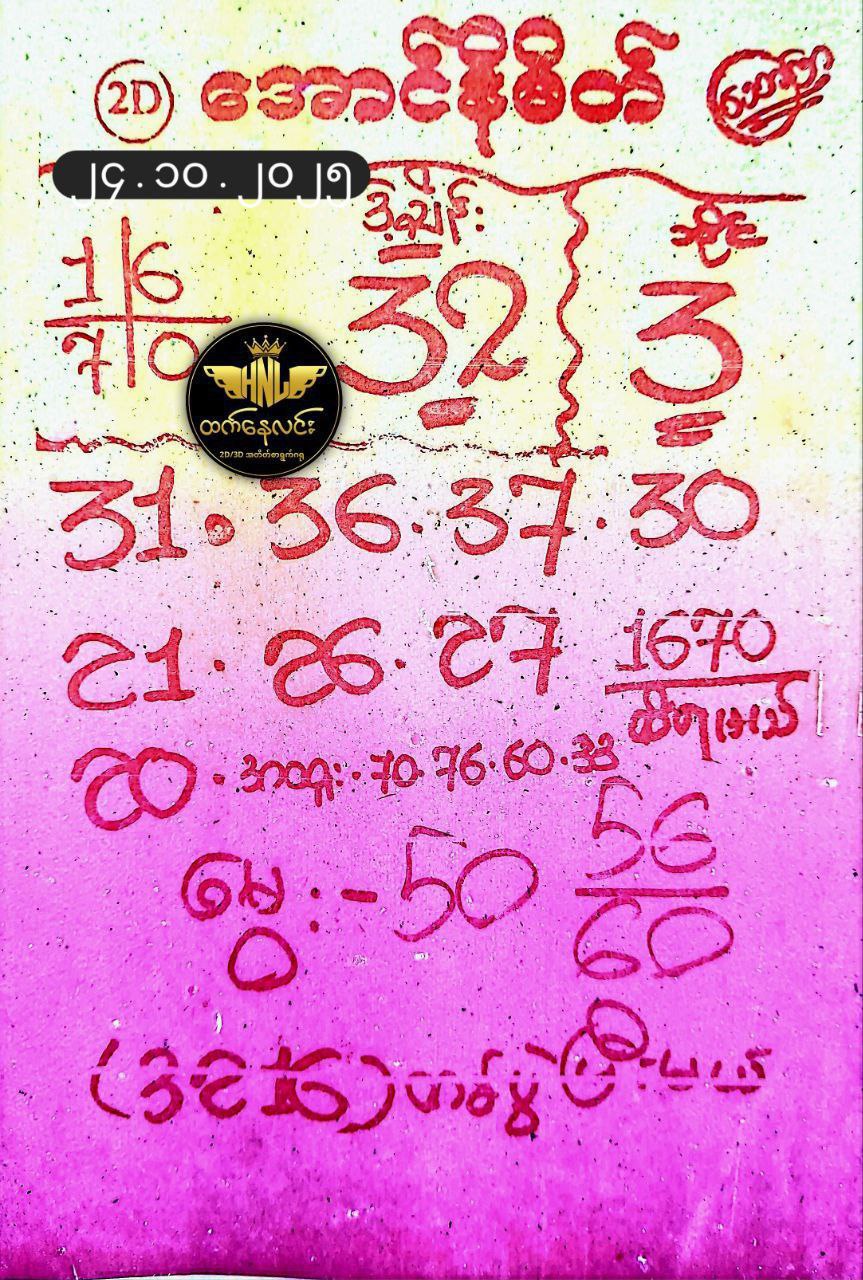 2D အောင်နိမိတ် သောကြာ
၂၄.၁၀.၂၀၂၅
ဒဲ့ချိန်း
16
70
32
ထိုင်
3
HNL
ထက်နေလင်း
2D/3D အတိတ်စာရွက်ဂရု
31.36.37.30
21.26.27
1670
20.အထူး.70.76.60.33
မွေး:-50
0
56
60
(3216)တစ်ပွဲပြီးမယ်